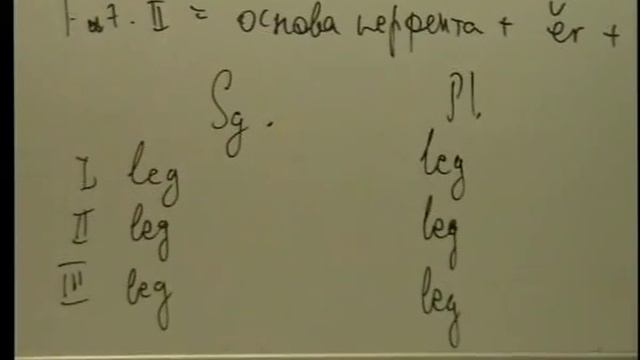 Fut. II = основа перфекта + ĕr +
Sg. Pl.
I leg leg
II leg leg
III leg leg